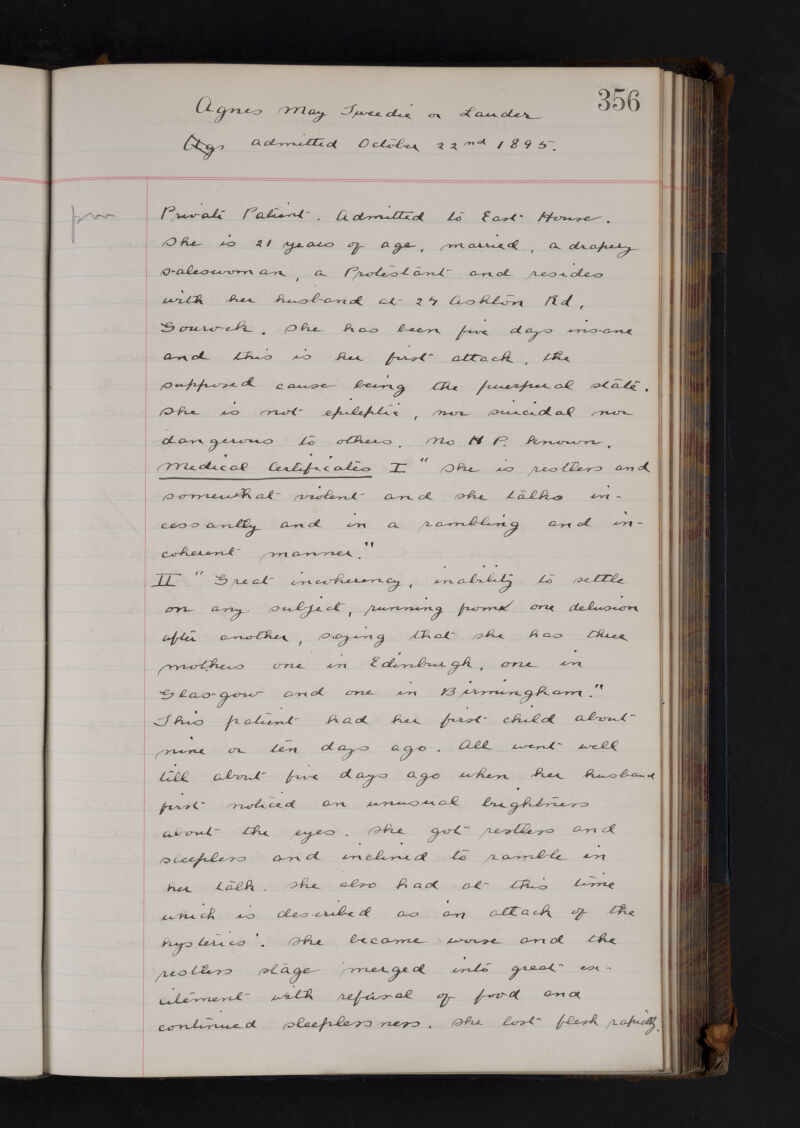 356
Agnes May Tweedie or Lauder
Ag admitted October 22nd 1895.
Private Patient. Admitted to East House.
She is 21 years of age, married, a drapery
saleswoman, a Protestant and resides
with her husband at 27 Ashton Rd,
Gourock. She has been five days insane
and this is her first attack, the
supposed cause being the puerperal state.
She is not epileptic, nor suicidal nor
dangerous to others. No H P. known.
Medical Certificates I "She is restless and
somewhat violent and she talks in-
cessantly and in a rambling and in-
coherent manner."
II "Great incoherency, inability to settle
on any subject, running from one delusion
after another, saying that she has three
mothers one in Edinburgh, one in
Glasgow and one in Birmingham."
This patient had her first child about
nine or ten days ago. All went well
till about five days ago when her husband
first noticed an unusual brightness
about the eyes. She got restless and
sleepless and inclined to ramble in
her talk. She also had at this time
which is described as 'an attack of the
hysterics'. She became worse and the
restless stage merged into great ex-
citement with refusal of food and
continued sleeplessness. She lost flesh rapidly.